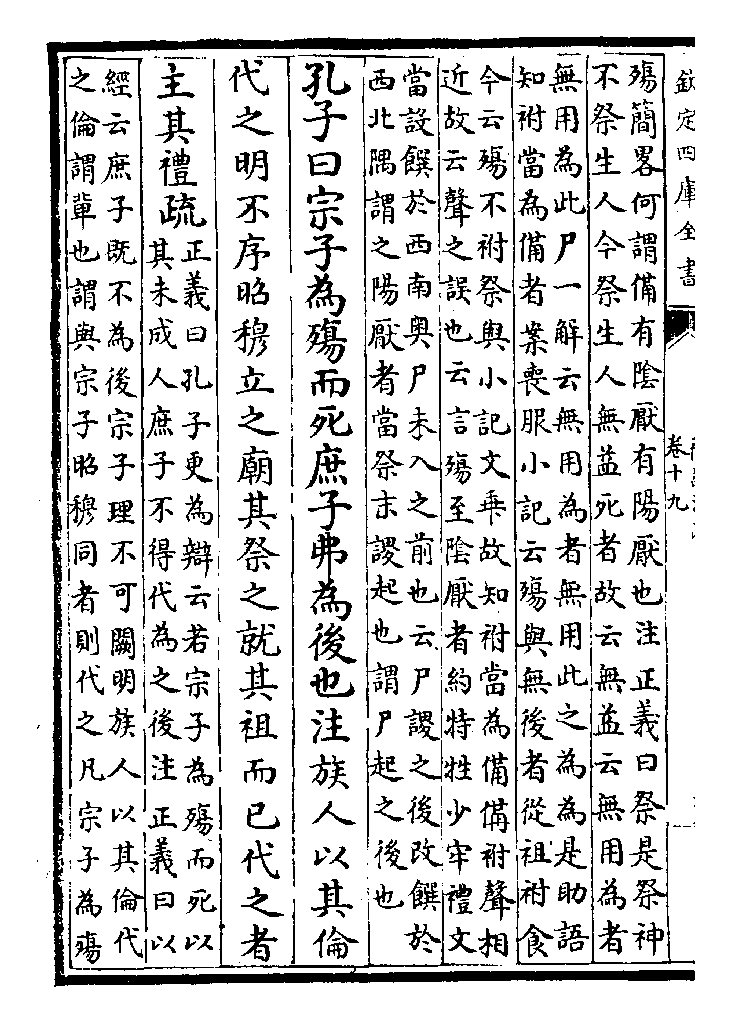 欽定四庫全書
卷十九
殤簡畧何謂備有陰厭有陽厭也注正義曰祭是祭神
不祭生人今祭生人無益死者故云無益云無用為者
無用為此尸一解云無用為者無用此之為為是助語
知祔當為備者案喪服小記云殤與無後者從祖祔食
今云殤不祔祭與小記文乖故知祔當為備備祔聲相
近故云聲之誤也云言殤至陰厭者約特牲少牢禮文
當設饌於西南奥尸未入之前也云尸謖之後改饌於
西北隅謂之陽厭者當祭末謖起也謂尸起之後也
孔子曰宗子為殤而死庶子弗為後也注族人以其倫
代之明不序昭穆立之廟其祭之就其祖而已代之者
主其禮疏正義曰孔子更為辯云若宗子為殤而死以
其未成人庶子不得代為之後注正義曰以
經云庶子既不為後宗子理不可闕明族人以其倫代
之倫謂軰也謂與宗子昭穆同者則代之凡宗子為殤